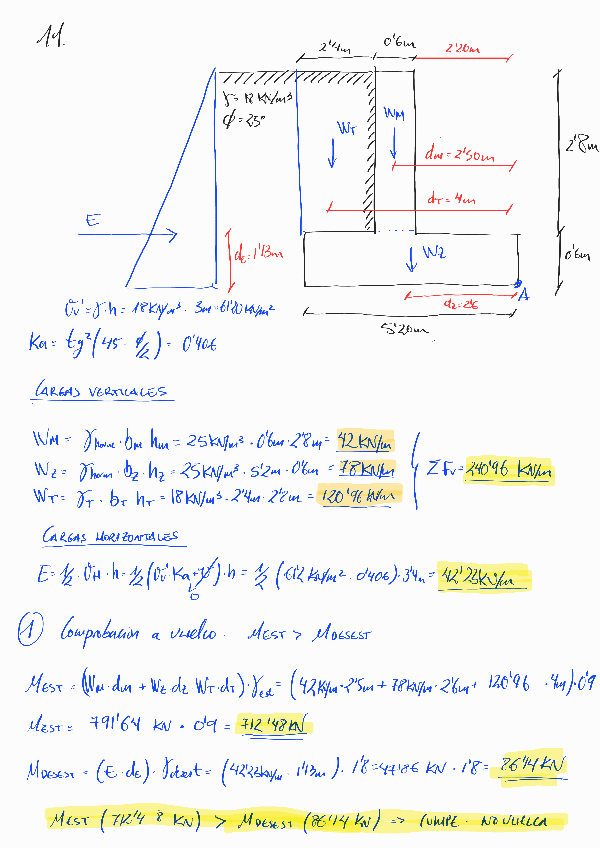 11.
2'4m 0'6m 2'20m
γ = 18 KN/m³
ϕ = 25°
WT WM
dM = 2'50m
dT = 4m
2'8m
E
dE = 1'13m
WZ
0'6m
A
dZ = 2'6
5'20m
σv' = γ · h = 18 KN/m³ · 3'4m = 61'20 KN/m²
Ka = tg² (45 - ϕ/2) = 0'406
CARGAS VERTICALES
WM = γhorm · bM · hM = 25 KN/m³ · 0'6m · 2'8m = 42 KN/m
WZ = γhorm · bZ · hZ = 25 KN/m³ · 5'2m · 0'6m = 78 KN/m
ΣFv = 240'96 KN/m
WT = γT · bT · hT = 18 KN/m³ · 2'4m · 2'8m = 120'96 KN/m
CARGAS HORIZONTALES
0
1 Comprobación a vuelco. MEST > MDESEST
MEST = (WM · dM + WZ · dZ WT · dT) · γest = (42 KN/m · 2'5m + 78 KN/m · 2'6m + 120'96 · 4m) · 0'9
MEST = 791'64 KN · 0'9 = 712'48 KN
MDESEST = (E · dE) · γdesest = (42'23 KN/m · 1'13m) · 1'8 = 47'86 KN · 1'8 = 86'14 KN
MEST (712'48 KN) > MDESEST (86'14 KN) => CUMPLE. NO VUELCA